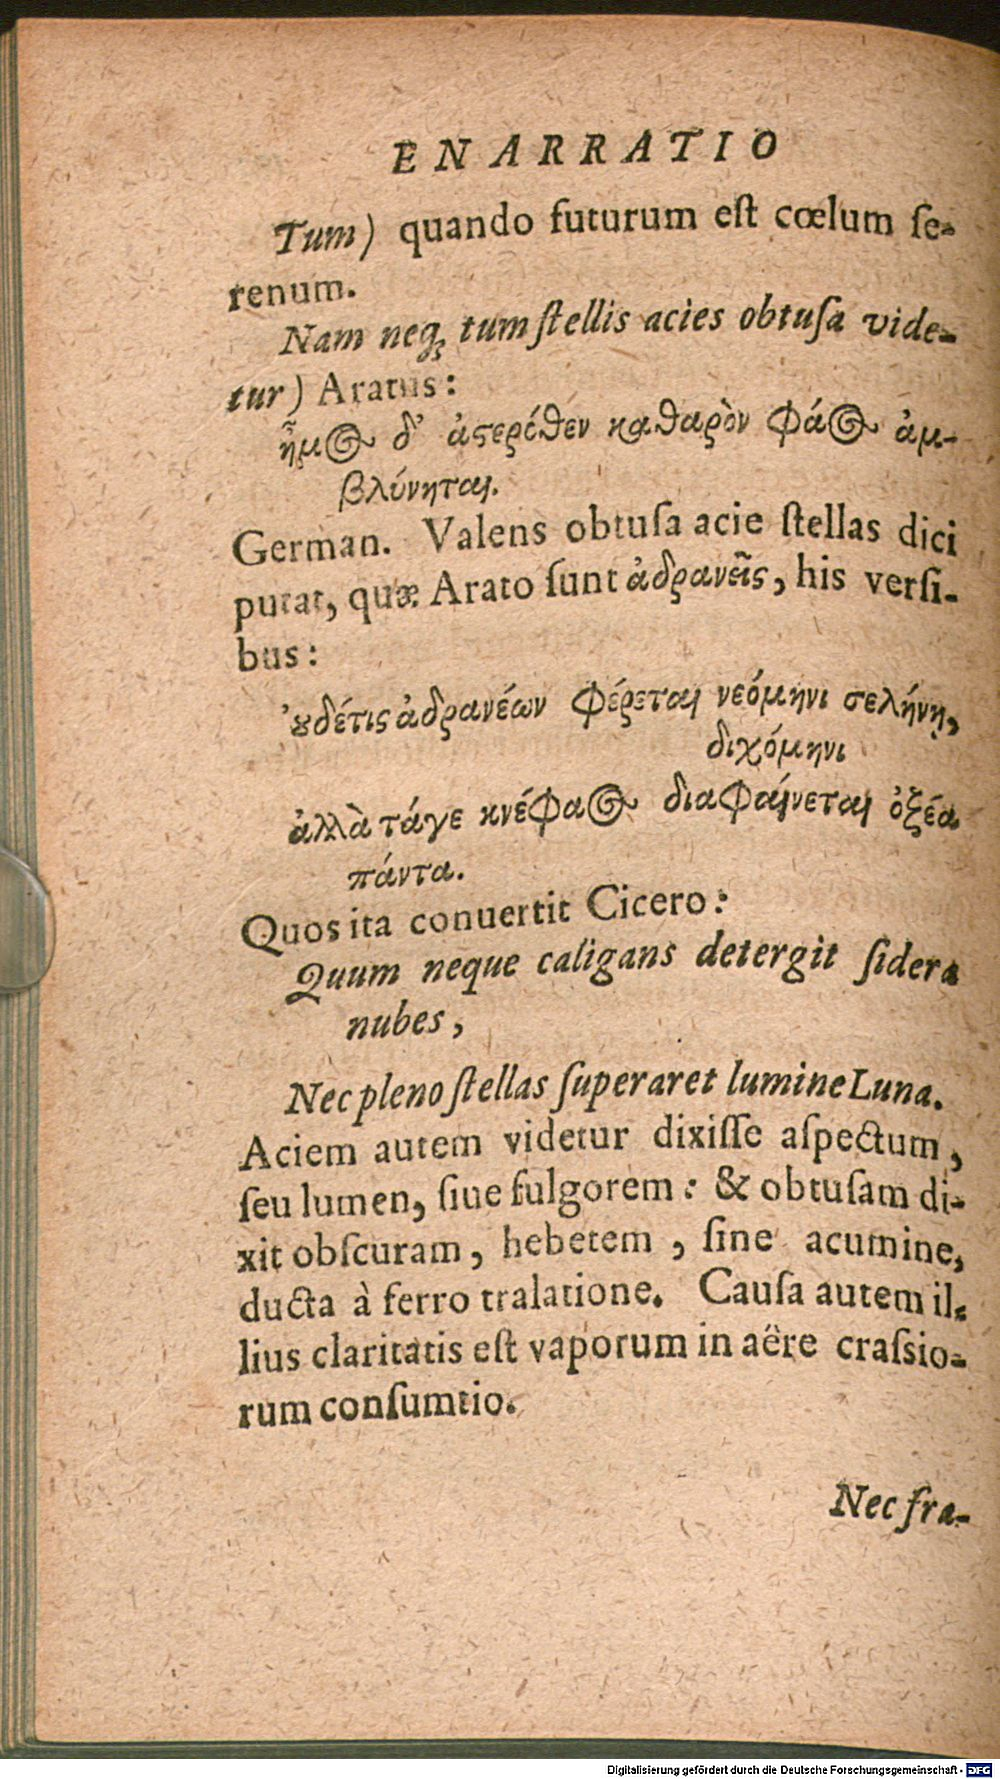 ENARRATIO
Tum) quando futurum eſt cœlum ſe-
renum.
Nam neq; tum ſtellis acies obtuſa vide-
tur) Aratus:
ἦμος δ' ἀςερόθεν καθαρὸν φάος ἀμ-
βλύνηται.
German. Valens obtuſa acie ſtellas dici
putat, quæ Arato ſunt ἀδρανεῖς, his verſi-
bus:
ȣδέτις ἀδρανέων φέρεται νεόμηνι σελήνῃ,
διχόμηνι
ἀλλὰ τάγε κνέφαος διαφαίνεται ὀξέα
πάντα.
Quos ita conuertit Cicero:
Quum neque caligans detergit ſidera
nubes,
Nec pleno ſtellas ſuperaret lumine Luna.
Aciem autem videtur dixiſſe aſpectum,
ſeu lumen, ſiue fulgorem: & obtuſam di-
xit obſcuram, hebetem, ſine acumine,
ducta à ferro tralatione. Cauſa autem il-
lius claritatis eſt vaporum in aëre craſsio-
rum conſumtio.
Nec fra-
Digitalisierung gefördert durch die Deutsche Forschungsgemeinschaft - DFG